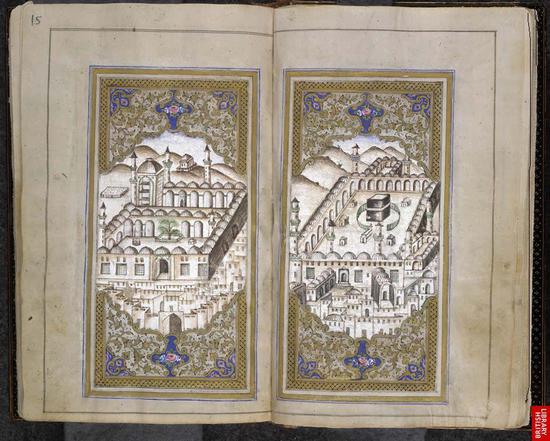 15
BRITISH
LIBRARY